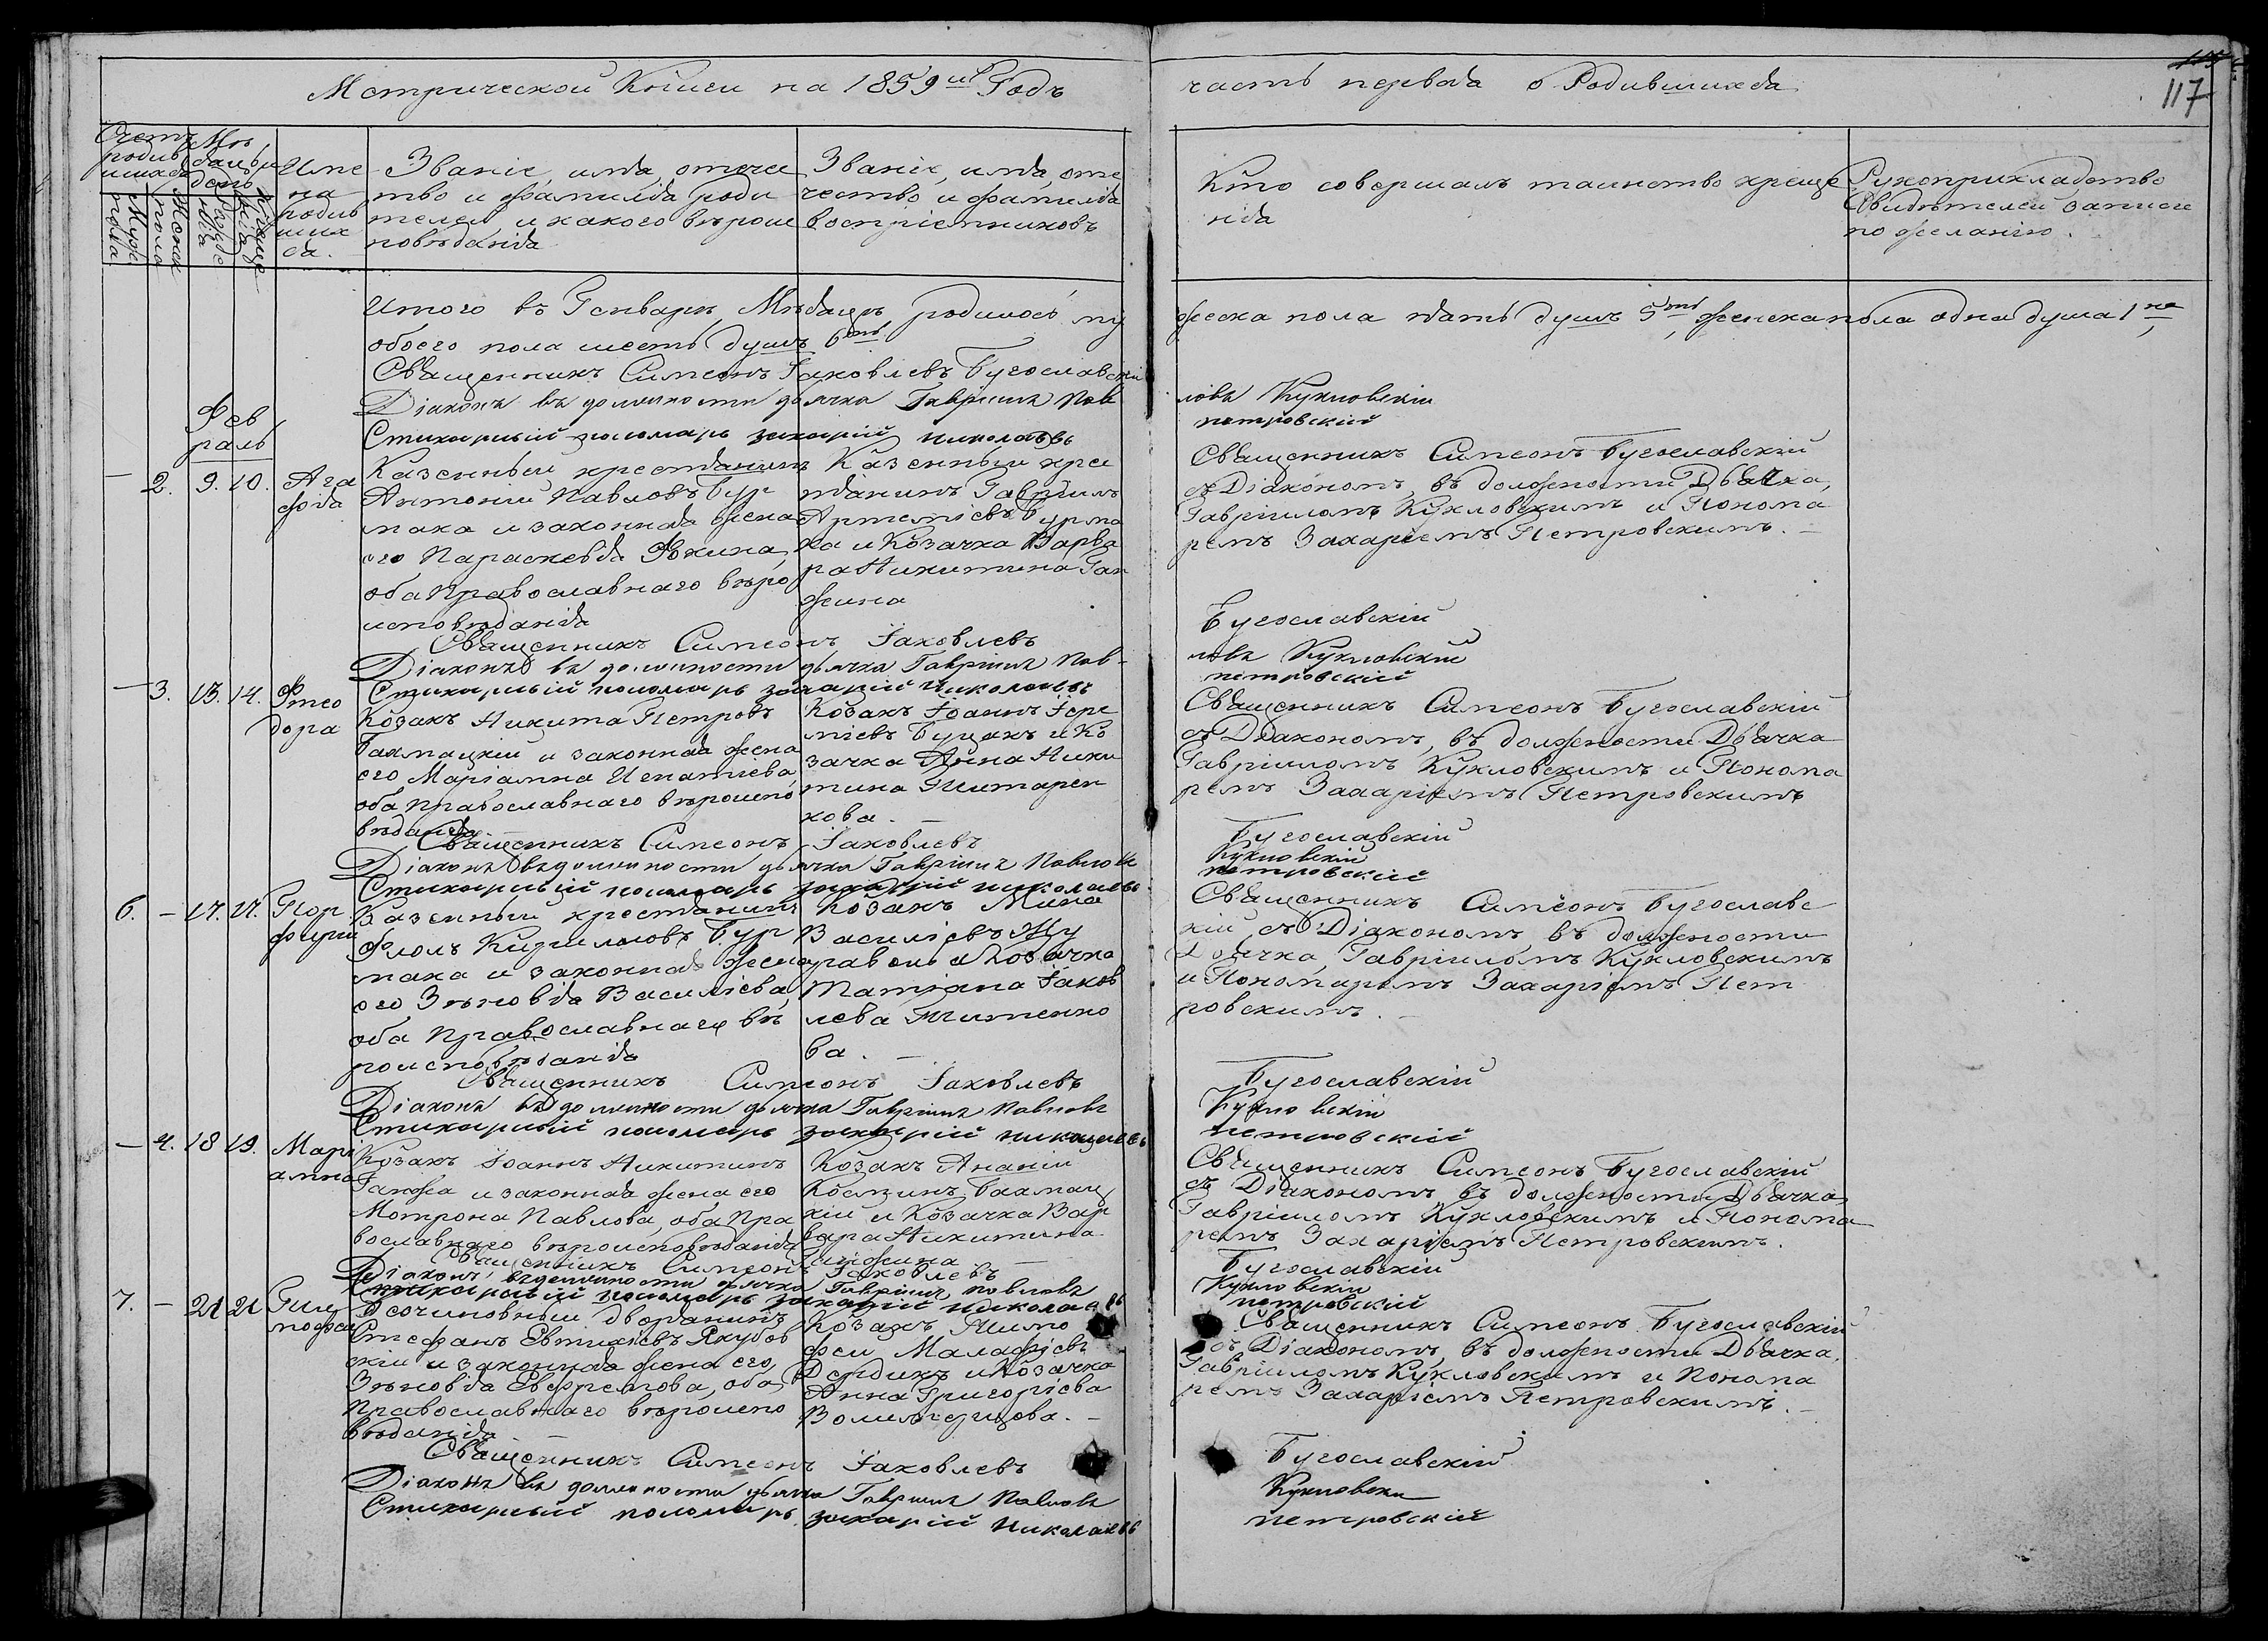 Метрической Книги на 1859й Годъ
часть первая о Родившихся
117
Счетъ родив шихся
Мѣ сяцъ и день
Муж. пола
Женск. пола
рожде нія
креще нія
Име на родив ших ся.
Званіе, имя, отече
ство и фамилія роди
телей и какого вѣроис
повѣданія
Званіе, имя, оте
чество и фамилія
воспріемниковъ
Кто совершалъ таинство креще
нія
Рукоприкладство
Свидѣтелей записи
по желанію.
Итого въ Генварѣ Мѣсяцѣ родилось му
жеска пола пять душъ 5ть женска пола одна душа 1на
обоего пола шесть душъ 6ть
Священникъ Симеонъ Іаковлевъ Бугославскій
Діаконъ въ должности дьячка Гавріилъ Пав
ловъ Кукловскій
Стихарный пономарь Захарій Николаевъ
петровскій
Фев
раль
— 2. 9. 10. Ага
фія
Казенный крестьянинъ
Антоній Павловъ Бур
мака и законная жена
его Параскевья Фокина,
оба Православнаго вѣро
исповѣданія
Казенный крес
тьянинъ Гавріилъ
Артеміевъ Бурма
ка и Козачка Варва
ра Никитина Ган
жина
Священникъ Симеонъ Бугославскій
съ Діакономъ, въ должности Дьячка,
Гавріиломъ Кукловскимъ и Понома
ремъ Захаріемъ Петровскимъ. —
Священникъ Симеонъ Іаковлевъ
Бугославскій
Діаконъ въ должности дьячка Гавріилъ Пав-
ловъ Кукловскій
Стихарный пономарь Захарій Николаевъ
петровскій
— 3. 13. 14. Фео
дора
Козакъ Никита Петровъ
Бахмацкій и законная жена
его Маріамна Игнатіева,
оба православнаго вѣроиспо
вѣданія
Козакъ Іоаннъ
Буцакъ и Ко
зачка Анна Ники
тина
кова. —
Священникъ Симеонъ Бугославскій
съ Діакономъ, въ должности Дьячка
Гавріиломъ Кукловскимъ и Понома
ремъ Захаріемъ Петровскимъ
Священникъ Симеонъ Іаковлевъ
Бугославскій
Діаконъ въ должности дьячка Гавріилъ Павловъ
Кукловскій
Стихарный пономарь Захарій Николаевъ
петровскій
6. — 17. 17. Пор
фирій
Казенный крестьянинъ
Флоръ Кирилловъ Бур
мака и законная жена
его Зѣновія Василіева,
оба Православнаго вѣ
роисповѣданія
Козакъ Мина
Василіевъ Жу
равель и Козачка
Татіана Іаков
лева
ва. —
Священникъ Симеонъ Бугославс
кій съ Діакономъ въ должности
Дьячка, Гавріиломъ Кукловскимъ
и Пономаремъ Захаріемъ Пет
ровскимъ. —
Священникъ Симеонъ Іаковлевъ
Бугославскій
Діаконъ въ должности дьячка Гавріилъ Павловъ
Кукловскій
Стихарный пономарь Захарій Николаевъ
петровскій
— 4. 18 19. Марі
амна
Козакъ Іоаннъ Никитинъ
Ганжа и законная жена его
Мотрона Павлова, оба Пра
вославнаго вѣроисповѣданія
Козакъ Ананій
Косминъ Бахмац
кій и Козачка Вар
вара Никитина
Ганжина —
Священникъ Симеонъ Бугославскій
съ Діакономъ въ должности Дьячка,
Гавріиломъ Кукловскимъ и Понома
ремъ Захаріемъ Петровскимъ.
Священникъ Симеонъ Іаковлевъ
Бугославскій
Діаконъ въ должности дьячка Гавріилъ Павловъ
Кукловскій
Стихарный пономарь Захарій Николаевъ
петровскій
7. — 21 21 Тимо
фей
дворянинъ
Стефанъ Евтихіевъ Якубов
скій и законная жена его,
Зѣновія Евфремова, оба
Православнаго вѣроиспо
вѣданія
Козакъ Тимо
фей Малафіевъ
Дердикъ и Козачка
Анна Григоріева
Священникъ Симеонъ Бугославскій
съ Діакономъ, въ должности Дьячка,
Гавріиломъ Кукловскимъ и Понома
ремъ Захаріемъ Петровскимъ. —
Священникъ Симеонъ Іаковлевъ
Бугославскій
Діаконъ въ должности дьячка Гавріилъ Павловъ
Кукловскій
Стихарный пономарь Захарій Николаевъ
петровскій